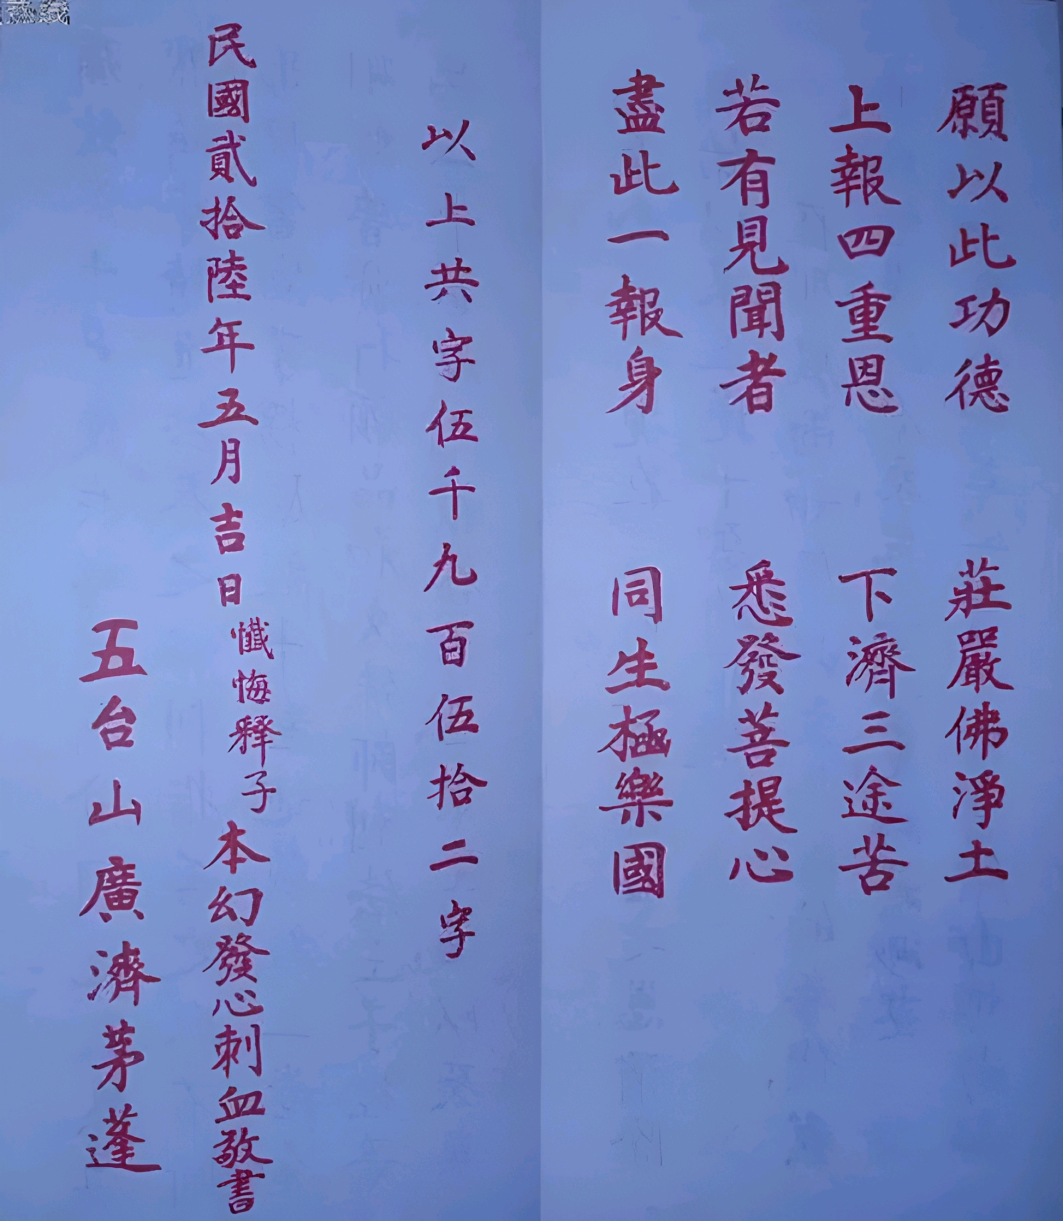 願以此功德　莊嚴佛淨土
上報四重恩　下濟三途苦
若有見聞者　悉發菩提心
盡此一報身　同生極樂國
以上共字伍千九百伍拾二字
民國貳拾陸年五月吉日懺悔释子本幻發心刺血敬書
五台山廣濟茅蓬